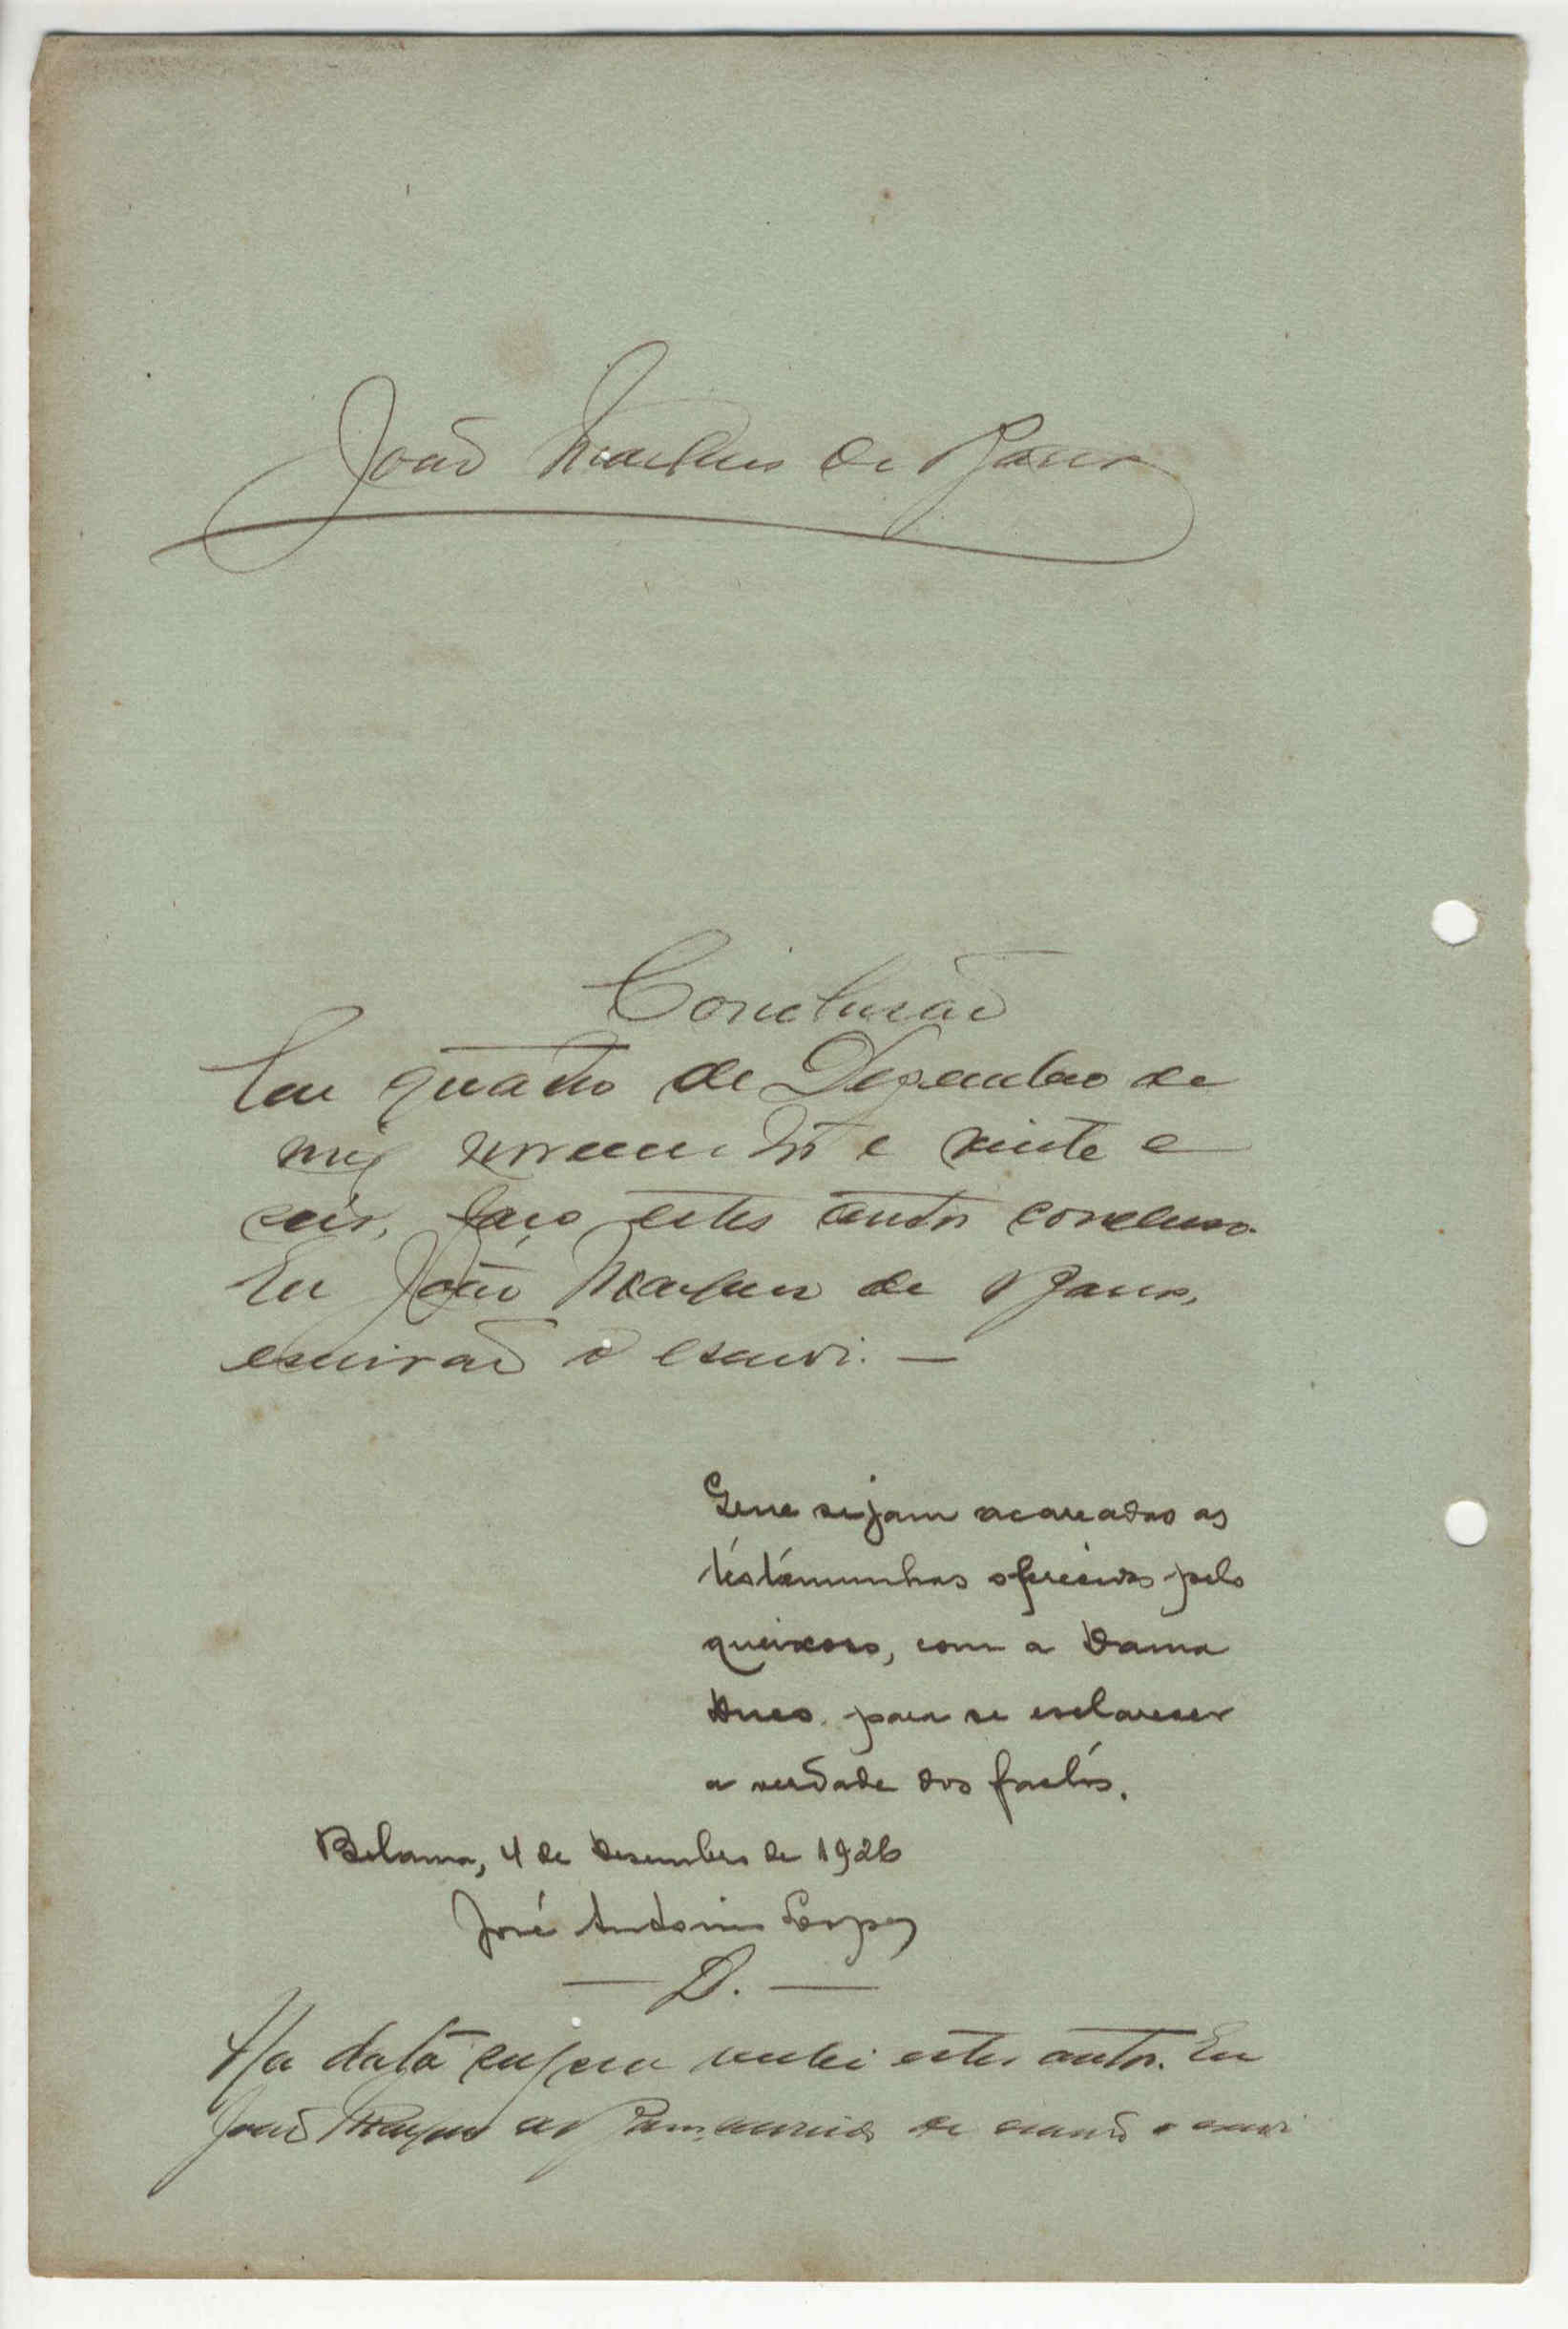 João Martins de Barros
Conclusão
Em quatro de Dezembro de
mil novecentos e vinte e
seis, faço estes autos conclusos.
Eu João Martins de Barros,
escrivão o escrevi. —
Que sejam acareadas as
testemunhas oferecidas pelo
queixoso, com a Dama
para se esclarecer
a verdade dos factos.
Bolama, 4 de Dezembro de 1926
José Antonio Lopes
— D. —
Na data supra recebi estes autos. Eu
João Martins de Barros, escrivão o escrevi